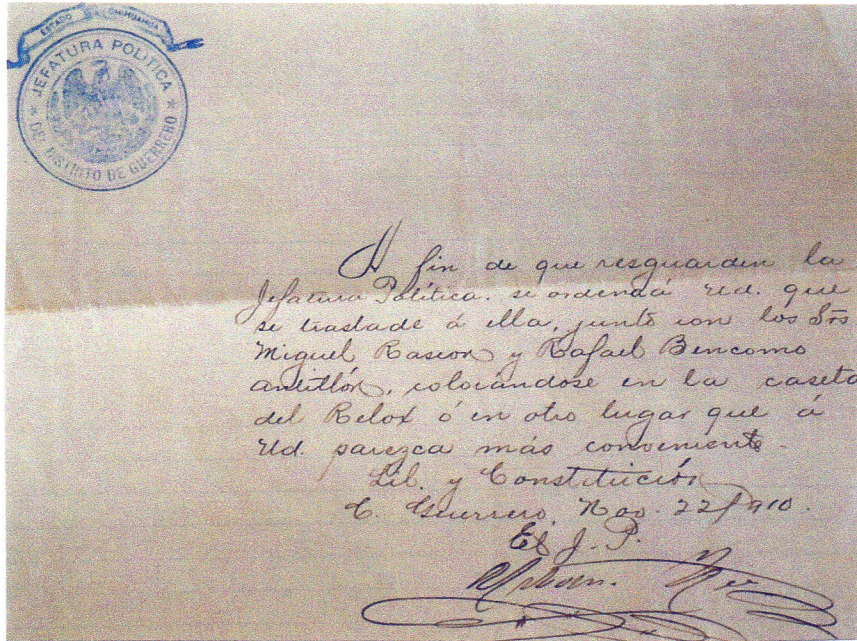 ESTADO CHIHUAHUA
JEFATURA POLITICA
DE DISTRITO DE GUERRERO
A fin de que resguarden la
Jefatura Política. se ordena á Ud. que
se traslade á ella, junto con los Srs
Miguel Rascon y Rafael Bencomo
colocándose en la caseta
del Relox ó en otro lugar que á
Ud. parezca más conveniente.
Lib. y Constitución
C. Guerrero, Nov. 22/910.
El J. P.
Urbano